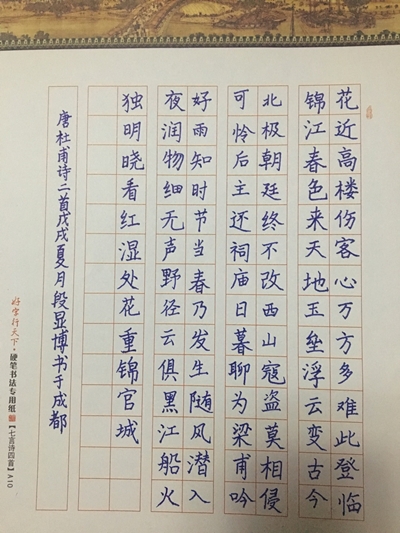 花近高楼伤客心万方多难此登临
锦江春色来天地玉垒浮云变古今
北极朝廷终不改西山寇盗莫相侵
可怜后主还祠庙日暮聊为梁甫吟
好雨知时节当春乃发生随风潜入
夜润物细无声野径云俱黑江船火
独明晓看红湿处花重锦官城
唐杜甫诗二首戊戌夏月段显博书于成都
好字行天下·硬笔书法专用纸【七言诗四首】A10